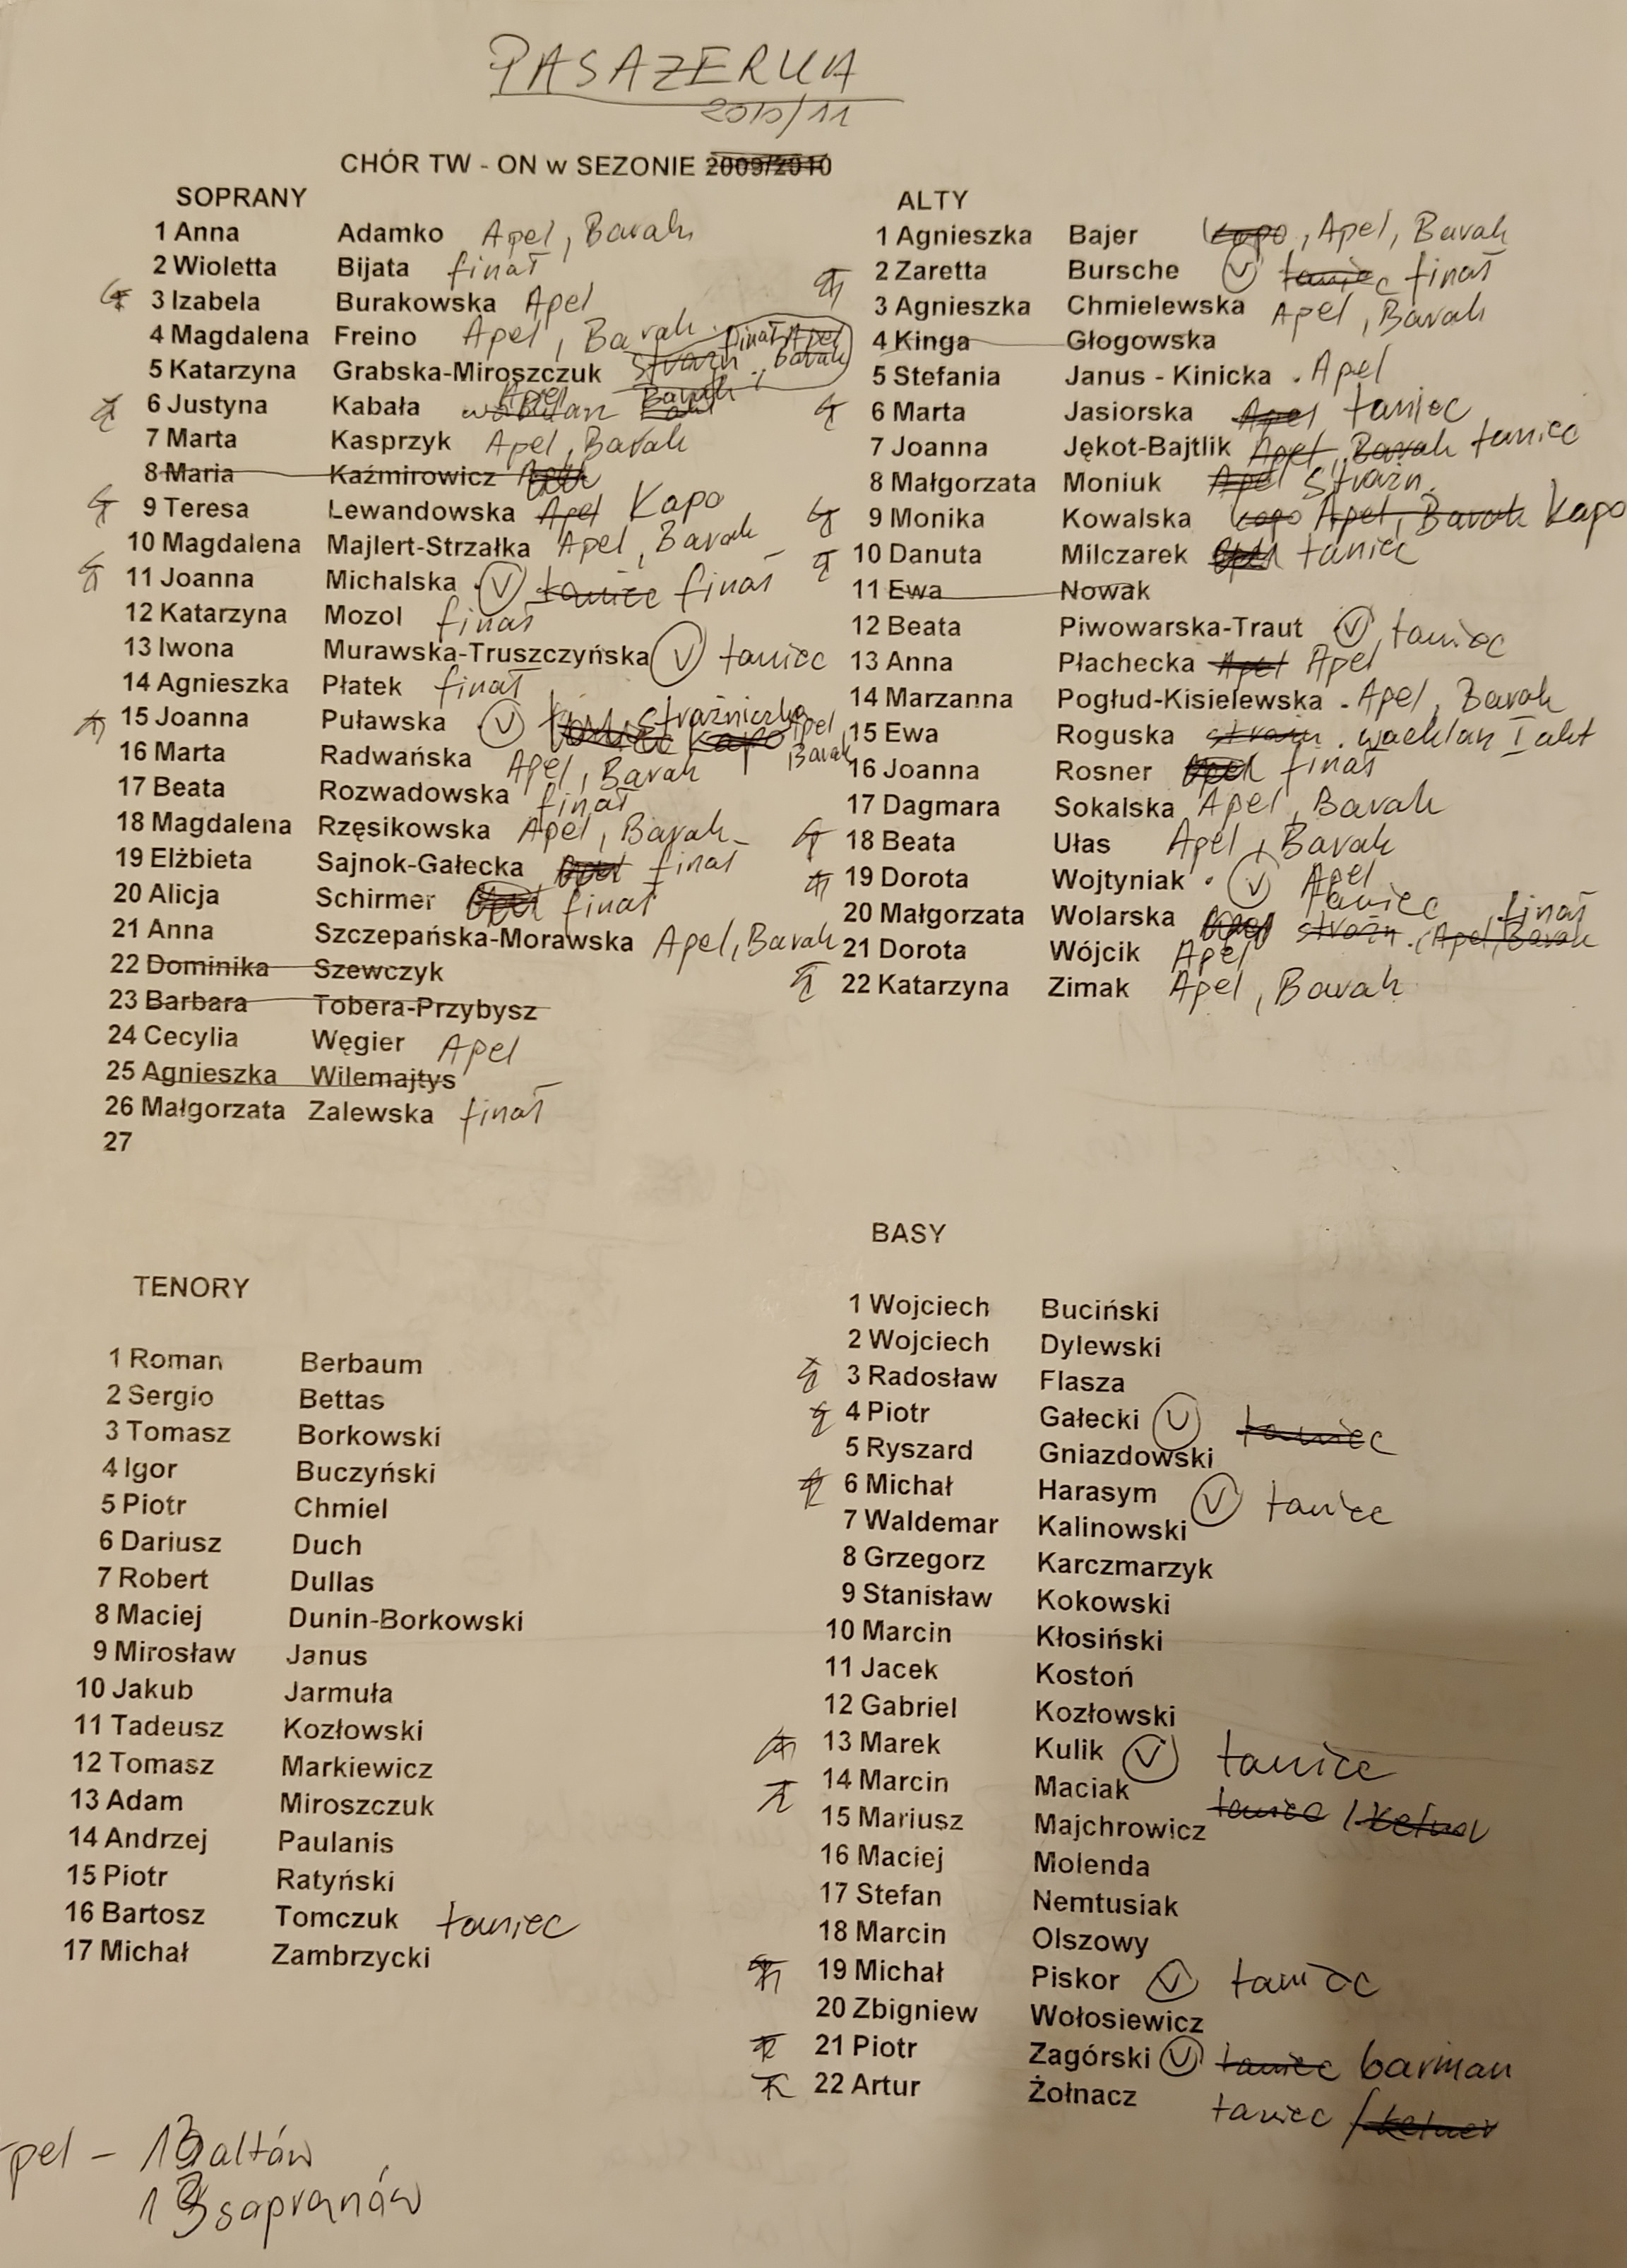 PASAŻERKA
2010/11
CHÓR TW - ON w SEZONIE 2009/2010
SOPRANY
1 Anna Adamko Apel, Barak
2 Wioletta Bijata finał
3 Izabela Burakowska Apel
4 Magdalena Freino Apel, Barak
5 Katarzyna Grabska-Miroszczuk strażn. finał Apel, Barak
6 Justyna Kabała Apel Barak
7 Marta Kasprzyk Apel, Barak
8 Maria Kaźmirowicz
9 Teresa Lewandowska Apel Kapo
10 Magdalena Majlert-Strzałka Apel, Barak
11 Joanna Michalska V taniec finał
12 Katarzyna Mozol finał
13 Iwona Murawska-Truszczyńska V taniec
14 Agnieszka Płatek finał
15 Joanna Puławska V strażniczka Kapo Apel, Barak
16 Marta Radwańska Apel, Barak
17 Beata Rozwadowska finał
18 Magdalena Rzęsikowska Apel, Barak
19 Elżbieta Sajnok-Gałecka finał
20 Alicja Schirmer finał
21 Anna Szczepańska-Morawska Apel, Barak
22 Dominika Szewczyk
23 Barbara Tobera-Przybysz
24 Cecylia Węgier Apel
25 Agnieszka Wilemajtys
26 Małgorzata Zalewska finał
27
ALTY
1 Agnieszka Bajer Kapo, Apel, Barak
2 Zaretta Bursche V taniec finał
3 Agnieszka Chmielewska Apel, Barak
4 Kinga Głogowska
5 Stefania Janus - Kinicka . Apel
6 Marta Jasiorska Apel taniec
7 Joanna Jękot-Bajtlik Apel, Barak taniec
8 Małgorzata Moniuk Apel strażn.
9 Monika Kowalska Kapo Apel, Barak Kapo
10 Danuta Milczarek Apel taniec
11 Ewa Nowak
12 Beata Piwowarska-Traut V, taniec
13 Anna Płachecka Apel Apel
14 Marzanna Pogłud-Kisielewska . Apel, Barak
15 Ewa Roguska strażn. wachlarz I akt
16 Joanna Rosner finał
17 Dagmara Sokalska Apel, Barak
18 Beata Ułas Apel, Barak
19 Dorota Wojtyniak . V Apel taniec
20 Małgorzata Wolarska strażn. (Apel, Barak finał
21 Dorota Wójcik Apel
22 Katarzyna Zimak Apel, Barak
TENORY
1 Roman Berbaum
2 Sergio Bettas
3 Tomasz Borkowski
4 Igor Buczyński
5 Piotr Chmiel
6 Dariusz Duch
7 Robert Dullas
8 Maciej Dunin-Borkowski
9 Mirosław Janus
10 Jakub Jarmuła
11 Tadeusz Kozłowski
12 Tomasz Markiewicz
13 Adam Miroszczuk
14 Andrzej Paulanis
15 Piotr Ratyński
16 Bartosz Tomczuk taniec
17 Michał Zambrzycki
BASY
1 Wojciech Buciński
2 Wojciech Dylewski
3 Radosław Flasza
4 Piotr Gałecki V taniec
5 Ryszard Gniazdowski
6 Michał Harasym V taniec
7 Waldemar Kalinowski
8 Grzegorz Karczmarzyk
9 Stanisław Kokowski
10 Marcin Kłosiński
11 Jacek Kostoń
12 Gabriel Kozłowski
13 Marek Kulik V taniec
14 Marcin Maciak taniec / kelner
15 Mariusz Majchrowicz
16 Maciej Molenda
17 Stefan Nemtusiak
18 Marcin Olszowy
19 Michał Piskor V taniec
20 Zbigniew Wołosiewicz
21 Piotr Zagórski V taniec barman
22 Artur Żołnacz taniec / kelner
pel - 13 altów
13 sopranów